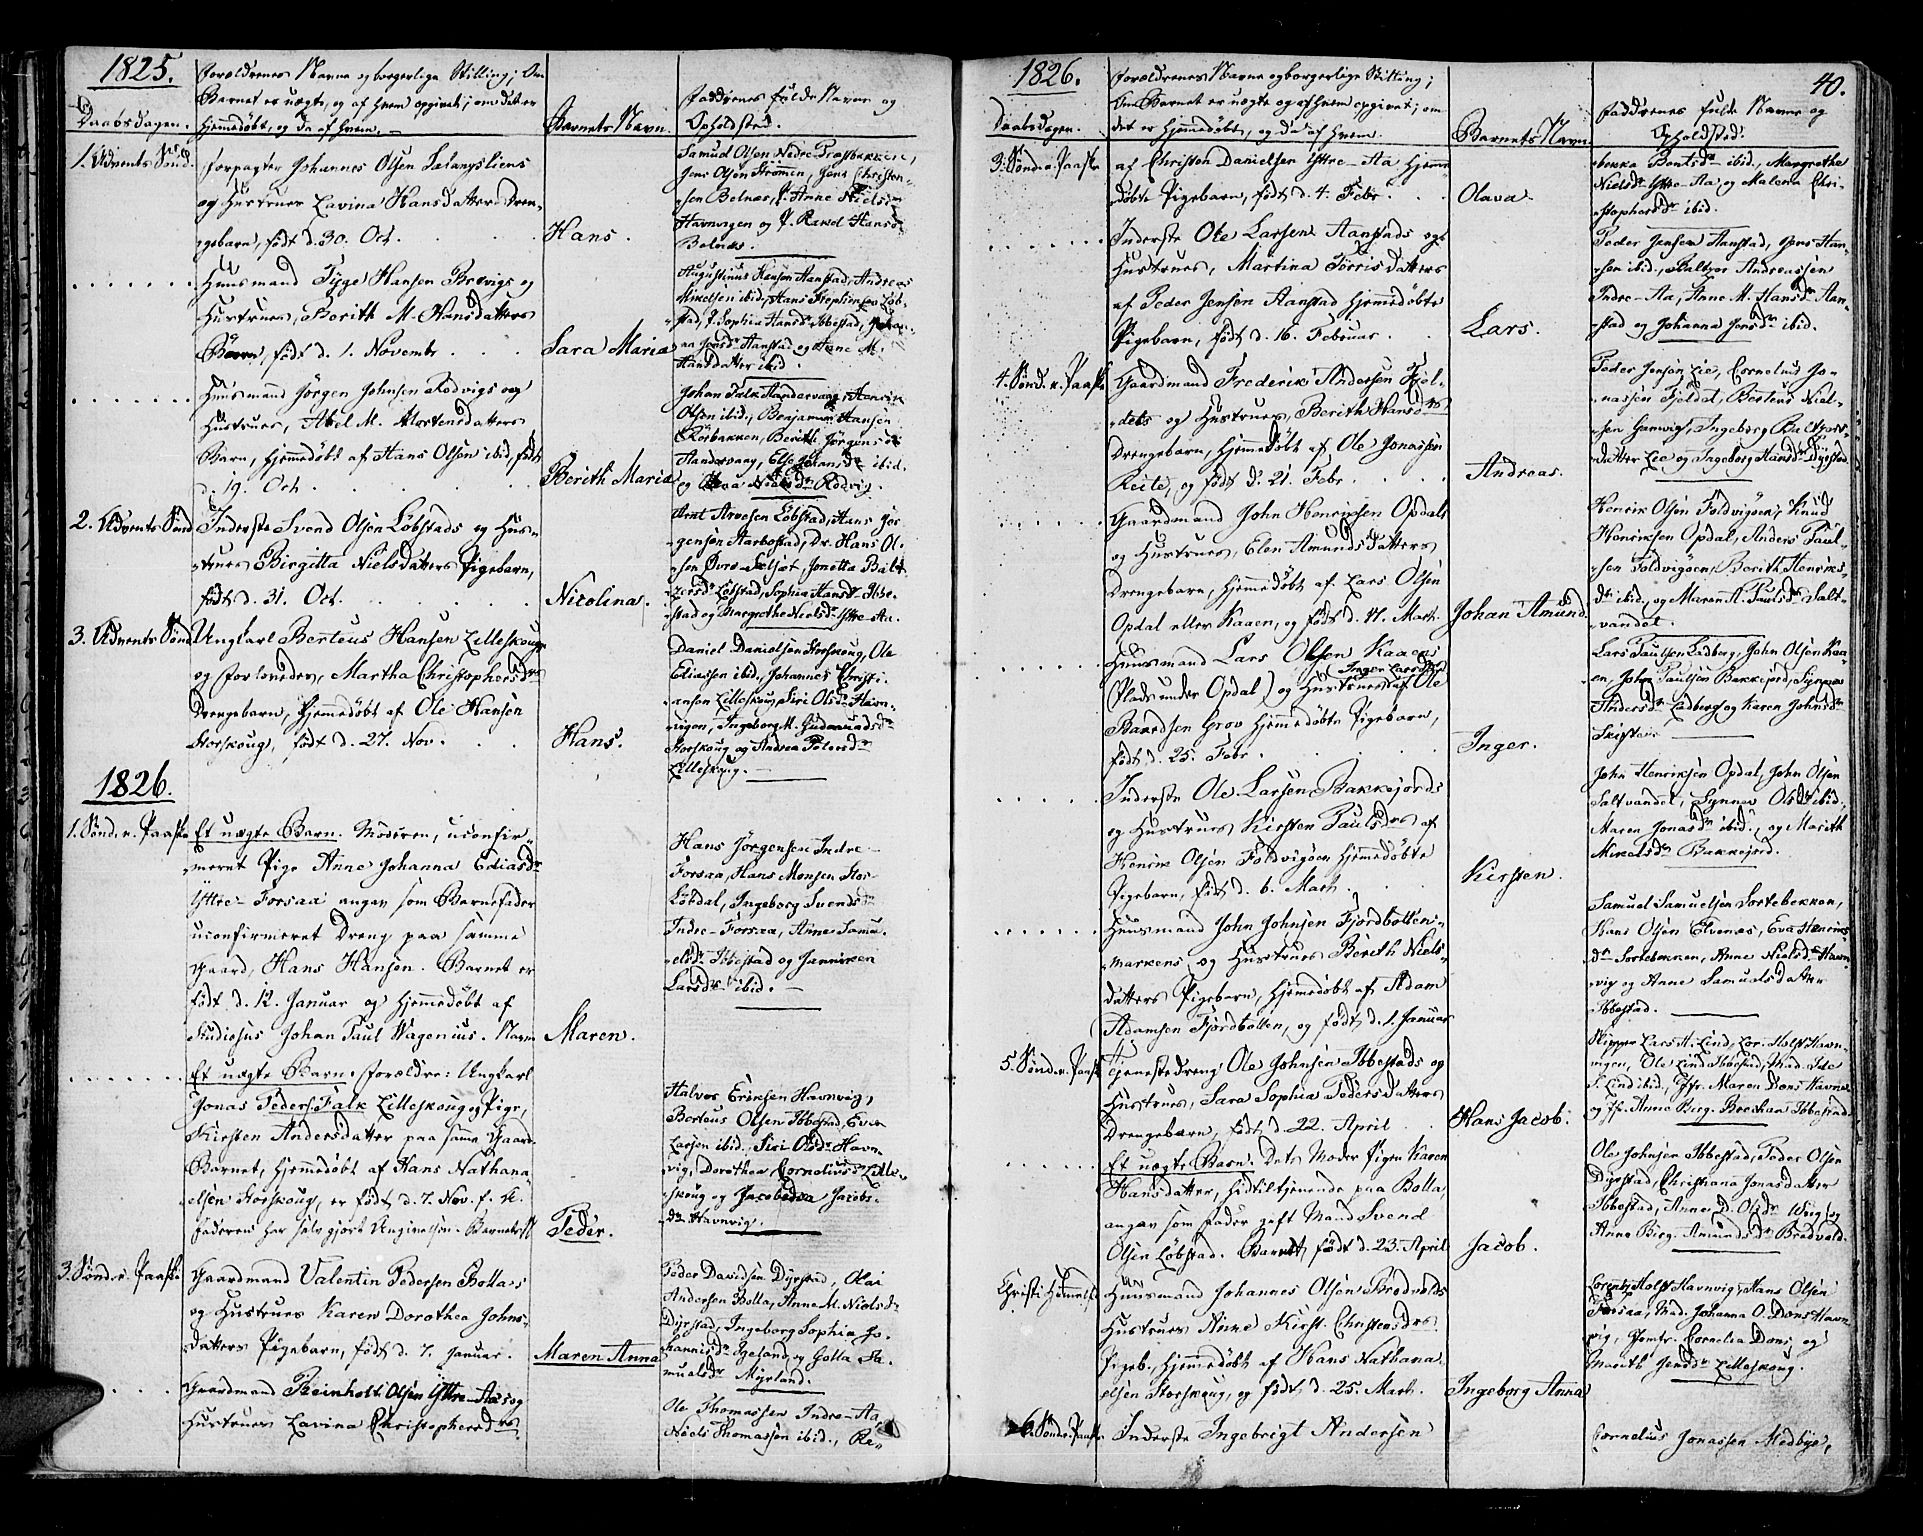 1825.
Daabsdagen.
Forældrenes Navne og borgerlige Stilling; Om
Barnet er uægte, og af hvem opgivet; om det er
hjemmedøbt, og da af hvem.
Barnets Navn.
Faddrenes fulde Navne og
Opholdsted.
1. Advents Sønd.
Forpagter Johannes Olsen
og Hustrues Lavina Hansdatters Dren-
gebarn, født d. 30. Oct.
Hans.
Samuel Olsen Nedre-
Jens Olsen Strømen, Jens Christen-
sen Bolnes, P. Anne Niels
Havnvigen og P. Hans
Huusmand Tyge Hansen Brevigs og
Hustrues, Berith M. Hansdatters
Barn, født d. 1. Novembr.
Sara Maria
Augustinus Hansen Aanstad, Andreas
Mikelsen ibid, Hans Stephensen Løb-
stad, P. Sophia Hansdr Ibbestad,
Jensdr Aanstad og Anne M.
Hansdatter ibid.
Huusmand Jørgen Johnsen Rodvigs og
Hustrues, Abel M. Mortensdatters
Barn, hjemmedøbt af Hans Olsen ibid, født
d. 19. Oct.
Berith Maria
Johan Falk Aandervaag, Henrik
Olsen ibid, Benjamin Hansen
Rørbakken, Berith Jørgensdr
Aandervaag, Else Johansdr ibid.
og Nielsdr Rodvig.
2. Advents Sønd
Inderste Svend Olsen Løbstads og Hus-
trues Birgitta Nielsdatters Pigebarn,
født d. 31. Oct.
Nicolina.
Arnt Arnesen Løbstad, Hans Jør-
gensen Aarbostad, Dr. Hans Ol-
sen Øvre-Selset, Jonetta Balt-
zersdr Løbstad, Sophia Hansdr Ibbe-
stad og Margrethe Nielsdr Yttre-Aa.
3. Advents Sønd
Ungkarl Berteus Hansen Lilleskoug
og Forlovedes, Martha Christophersdrs
Drengebarn, hjemmedøbt af Ole Hansen
Storskoug, født d. 27. Nov.
Hans.
Daniel Danielsen Storskoug, Ole
Eliassen ibid, Johannes Christi-
ansen Lilleskoug, Siri Olsdr Havn-
vigen, Ingeborg M. Gudmundsdr
Storskoug og Andrea Pedersdr
Lilleskoug.
1826.
1. Sønd. e. Paaske
Et uægte Barn. Moderen, uconfir-
meret Pige Anne Johanna Eliasdr
Yttre-Forsaa angav som Barnefader
uconfirmeret Dreng paa samme
Gaard, Hans Hansen. Barnet er
født d. 12. Januar og hjemmedøbt af
Studiosus Johan Paul Wagenius. Navn
Maren.
Hans Jørgensen Indre-
Forsaa, Hans Monsen Stor-
Løbdal, Ingeborg Svendsdr
Indre-Forsaa, Anne Samu-
elsdr Ibbestad og Janniken
Larsdr ibid.
Et uægte Barn. Forældre: Ungkarl
Jonas Peders. Falk Lilleskoug og Pige,
Kirsten Andersdatter paa samme Gaard.
Barnet, hjemmedøbt af Hans Nathana-
elsen Storskoug, er født d. 7. Nov. f. A.
Faderen har selv gjort Angivelsen. Barnets N.
Peder.
Halvor Eriksen Havnvig,
Berteus Olsen Ibbestad, Even
Larsen ibid., Siri Olsdr Havn-
vig, Dorothea Cornelius Lille-
skoug og Jacobedva Jacobs-
dr Havnvig.
3. Sønd. e. Paaske
Gaardmand Valentin Pedersen Bolla's
og Hustrues Karen Dorothea Johns-
datters Pigebarn, født d. 7. Januar.
Maren Anna
Peder Davidsen Dyrstad, Olai
Andersen Bolla, Anne M. Nielsdr
Dyrstad, Ingeborg Sophia Jo-
hannesdr Igeland og Golla Sa-
muelsdr Myrland.
Gaardmand Reinholt Olsen Yttre-Aas og
Hustrues Lavina Christophersdrs
Ole Thomassen Indre-Aa,
Niels Thomassen ibid., Re-
1826.
40.
Daabsdagen.
Forældrenes Navne og borgerlige Stilling;
Om Barnet er uægte og af hvem opgivet; om
det er hjemmedøbt, og da af hvem.
Barnets Navn
Faddrenes fulde Navne og
Opholdsted.
3. Sønd. e. Paaske
af Christen Danielsen Yttre-Aa hjem-
døbte Pigebarn, født d. 4. Febr.
Olava.
bekka Bentsdr ibid., Margrethe
Nielsdr Yttre-Aa og Malena Chri-
stophersdr ibid.
Inderste Ole Larsen Aanstads og
Hustrues, Martina Torrisdatters
af Peder Jensen Aanstad hjemmedøbte
Pigebarn, født d. 16. Februar.
Lars.
Peder Jensen Aanstad, Jens Han-
sen ibid., Baltzer Andreassen
Indre-Aa, Anne M. Hansdr Aan-
stad og Johanna Jensdr ibid.
4. Sønd. e. Paaske
Gaardmand Frederik Andersen Fjel-
dets og Hustrues, Berith Hansdrs
Drengebarn, hjemmedøbt af Ole Jonassen
Keite, og født d. 21. Febr.
Andreas.
Peder Jensen Lie, Cornelius Jo-
nassen Fjeldal, Berteus Niel-
sen Hamvig, Ingeborg Baltzers-
datter Lie og Ingeborg Hansdr Dyrstad
Gaardmand John Henriksen Opdals
og Hustrues, Elen Amundsdatters
Drengebarn, hjemmedøbt af Lars Olsen
Opdal eller Kaaen, og født d. 11. Mart.
Johan Amund.
Henrik Olsen Foldvigøen, Knud
Henriksen Opdal, Anders Paul-
sen Foldvigøen, Berith Henriks-
dr ibid., og Maren A. Paulsdr Salt-
vandet.
Huusmand Lars Olsen Kaaens
(Plads under Opdal) og Hustrues Inger Larsdrs af Ole
Baardsen Grov hjemmedøbte Pigebarn,
født d. 25. Febr.
Inger.
Lars Paulsen Ladberg, John Olsen Kaa-
en, John Paulsen Bakkejord, Synnev
Andersdr Ladberg og Karen Johnsdr
Inderste Ole Larsen Bakkejords
og Hustrues Kirsten Paulsdrs af
Henrik Olsen Foldvigøen hjemmedøbte
Pigebarn, født d. 6. Mart.
Kirsten.
John Henriksen Opdal, John Olsen
Saltvandet, Synnev Olsdr ibid.,
Maren Jonasdr ibid., og Marith
Mikelsdr Bakkejord.
Huusmand John Johnsen Fjordbotten-
markens og Hustrues Berith Niels-
datters Pigebarn, hjemmedøbt af Adam
Adamsen Fjordbotten, og født d. 1. Januar
Samuel Samuelsen Sortebekken,
Hans Olsen Elvenæs, Eva Henriks-
dr Sortebekken, Anne Nielsdr Havn-
vig og Anne Samuelsdatter
Ibbestad.
5. Sønd. e. Paaske
Tjenestedreng Ole Johnsen Ibbestads og
Hustrues, Sara Sophia Pedersdatters
Drengebarn, født d. 22. April
Hans Jacob.
Skipper Lars H. Lind, Lor. Holst Havn-
vigen, Ole Lind Ibbestad, Mad. Ide
S. Lind ibid., Jfr. Maren Dons Havnv.
og Jfr. Anne Birg. Brechan Ibbestad
Et uægte Barn. Dets Moder Pigen Karen
Hansdatter, hidtil tjenende paa Bolla,
angav som Fader gift Mand Svend
Olsen Løbstad. Barnet født d. 23. April
Jacob.
Ole Johnsen Ibbestad, Peder Olsen
Dyrstad, Christiana Jonasdatter
Ibbestad, Anne D. Olsdr Wiig og
Anne Birg. Amundsdr Bredvold.
Christi Himmelf.
Huusmand Johannes Olsen Bredvolds
Hustrues Anne Kirst. Christensdrs
Pigeb. hjemmedøbt af Hans Nathana-
elsen Storskoug, og født d. 25. Mart.
Ingeborg Anna
Lorentz Holst Havnvig, Hans Olsen
Forsaa, Mad. Johanna O. Dons Havn-
vig, Jomfr. Cornelia Dons og
Marith Jensdr Lilleskoug.
6. Sønd. e. Paaske
Inderste Ingebrigt Andersen
Cornelius Jonassen Medbye,